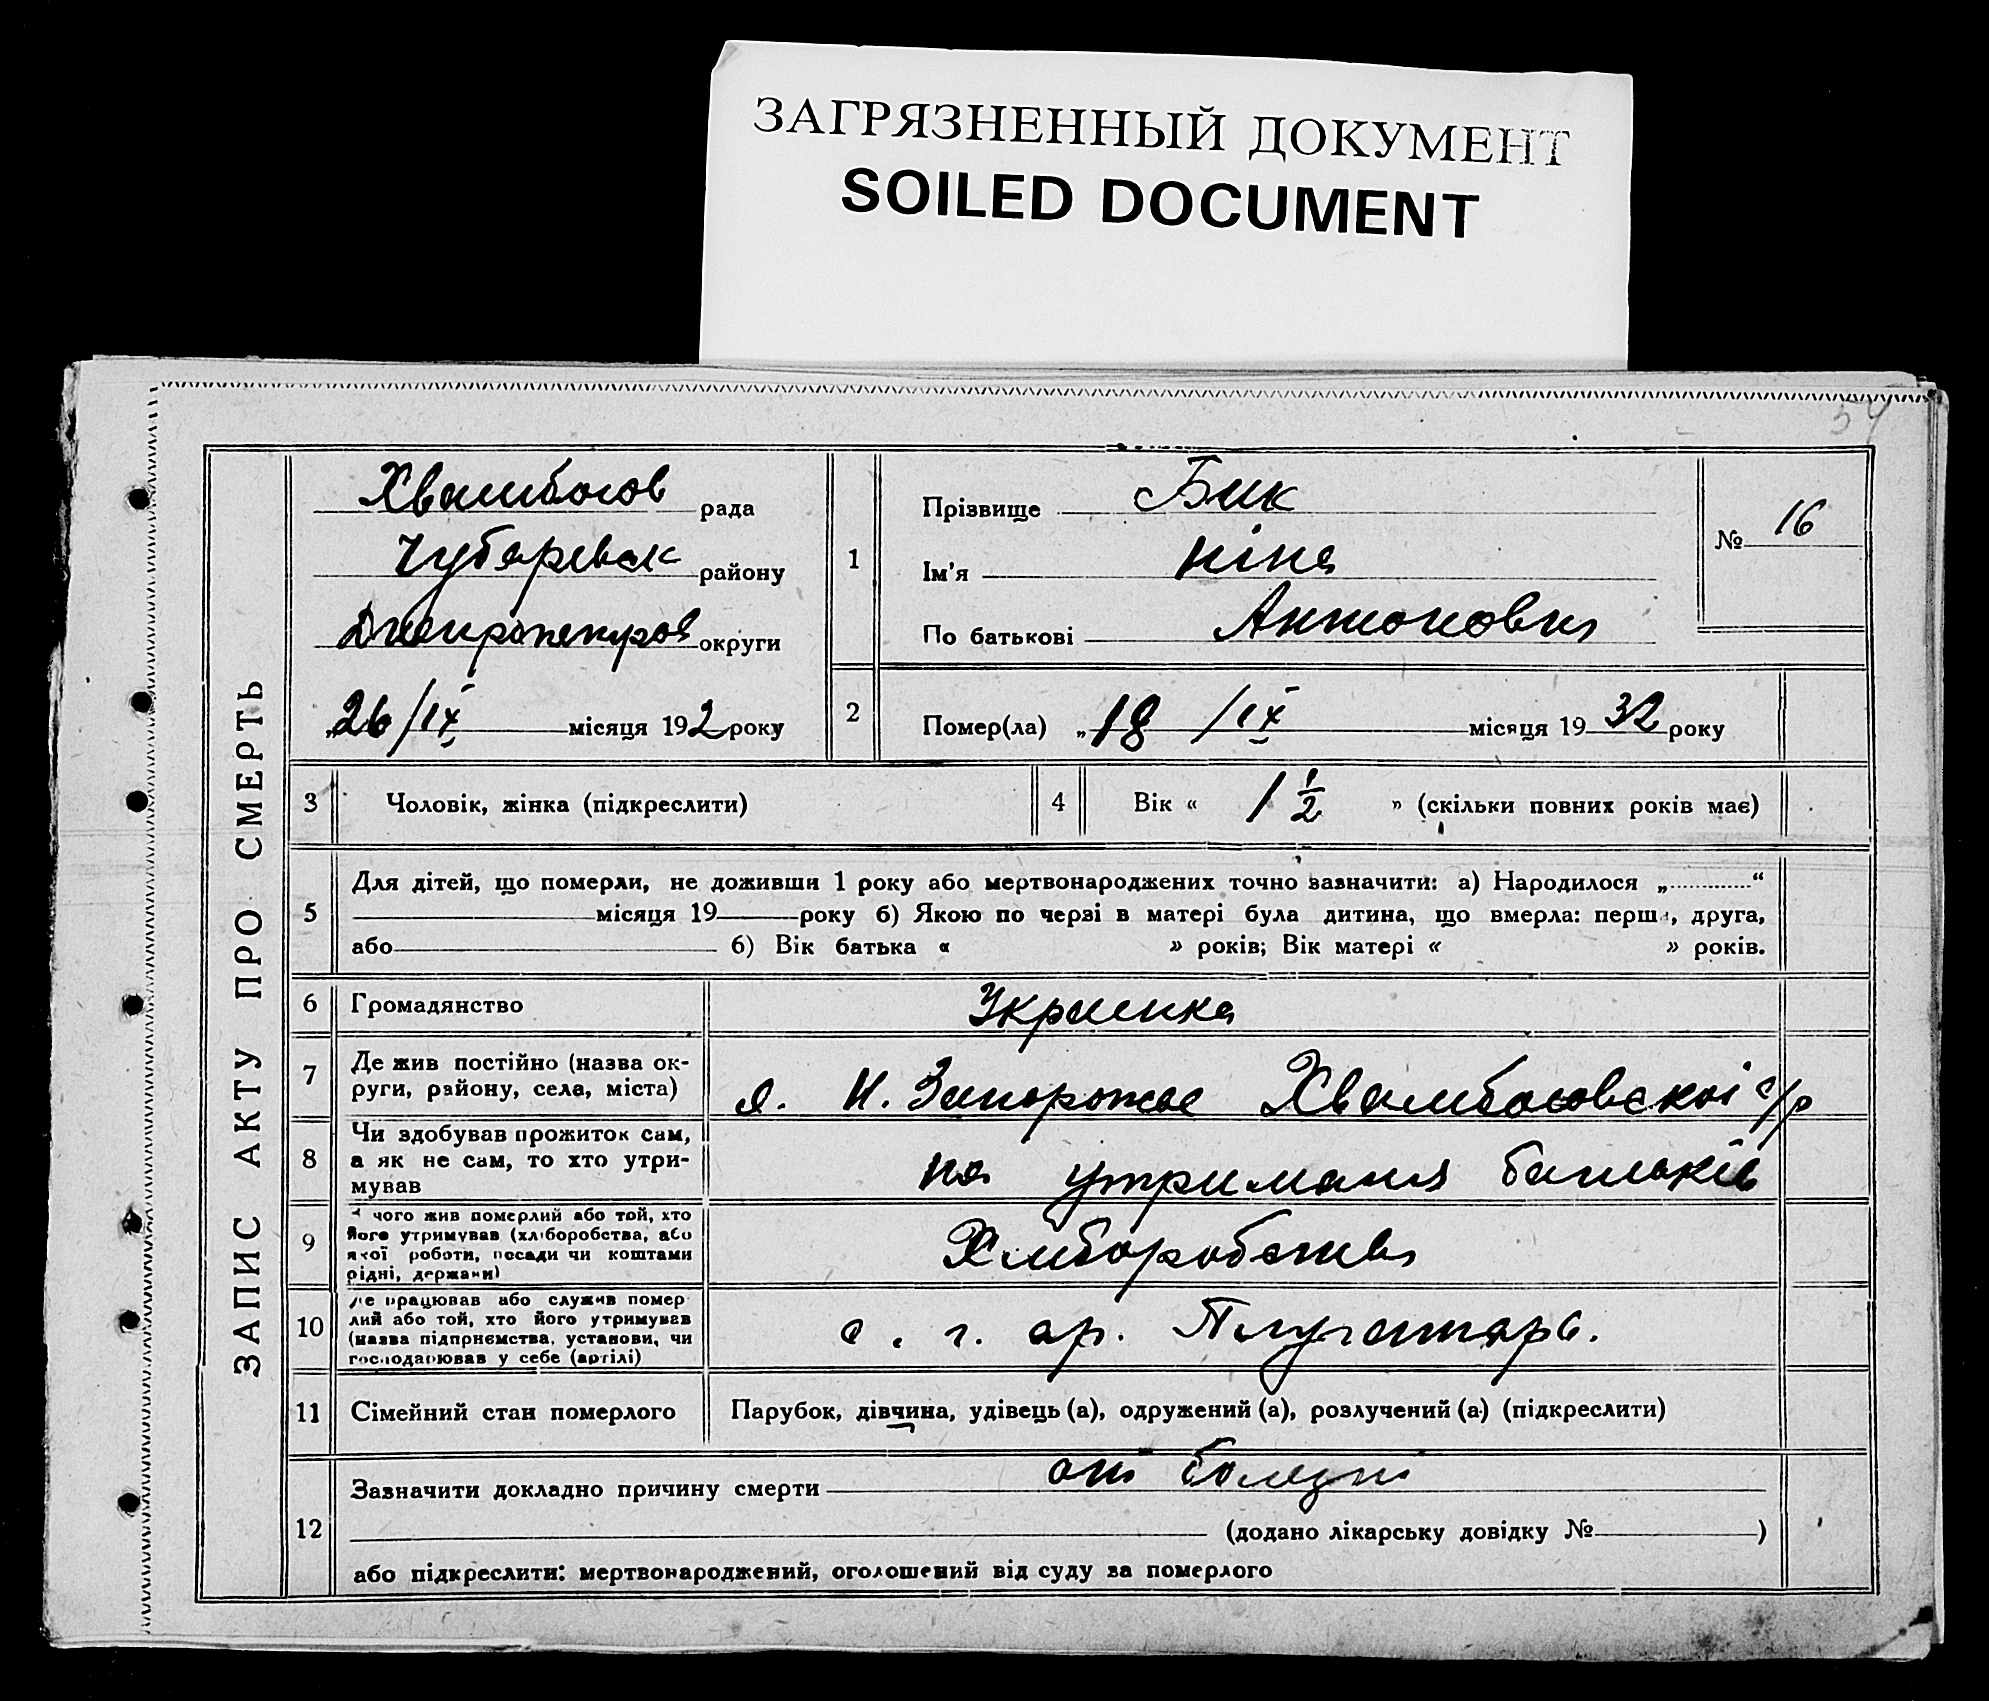 ЗАГРЯЗНЕННЫЙ ДОКУМЕНТ
SOILED DOCUMENT
54
ЗАПИС АКТУ ПРО СМЕРТЬ
Хвалибогов рада
Чубаревск району
Дніпропетров округи
„26/IX місяця 192 року
1
Прізвище Бик
Ім'я Ніна
По батькові Антоновна
№ 16
2
Помер(ла) „18 /IX місяця 1932 року
3 Чоловік, жінка (підкреслити)
4 Вік « 1 1/2 » (скільки повних років має)
5
Для дітей, що померли, не доживши 1 року або мертвонароджених точно зазначити: а) Народилося „ “
місяця 19 року б) Якою по черзі в матері була дитина, що вмерла: перша, друга,
або б) Вік батька « » років; Вік матері « » років.
6 Громадянство Украинка
7 Де жив постійно (назва ок-
руги, району, села, міста)
Н. Запорожье Хвалибоговскої с/р
8 Чи здобував прожиток сам,
а як не сам, то хто утри-
мував
на утриманя батьків
9 З чого жив померлий або той, хто
його утримував (хліборобства, або
якої роботи, посади чи коштами
рідні, держави)
Хліборобства
10 Де працював або служив помер
лий або той, хто його утримував
(назва підприємства, установи, чи
господарював у себе (артілі)
с. г. ар. Плугатарь.
11 Сімейний стан померлого
Парубок, дівчина, удівець (а), одружений (а), розлучений (а) (підкреслити)
12
Зазначити докладно причину смерти от болезні
(додано лікарську довідку № )
або підкреслити: мертвонароджений, оголошений від суду за померлого